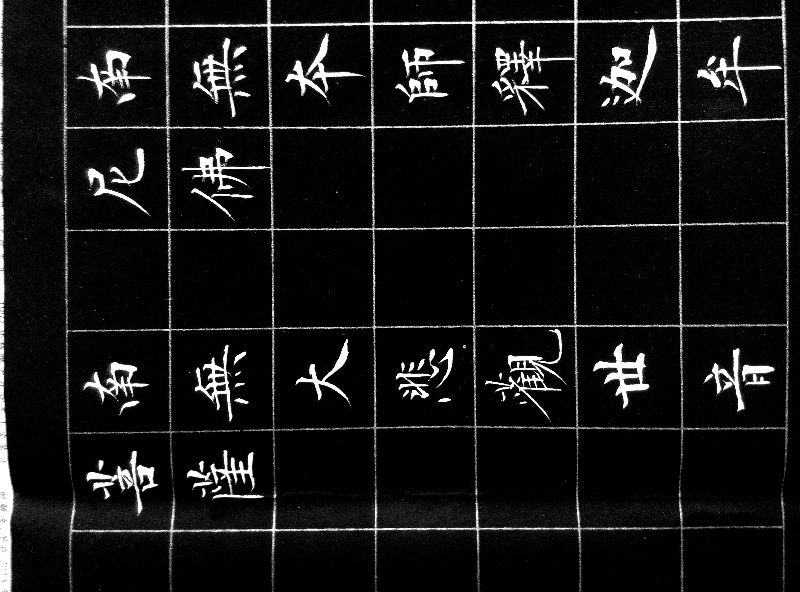 南無本師釋迦牟
尼佛
南無大悲觀世音
菩薩